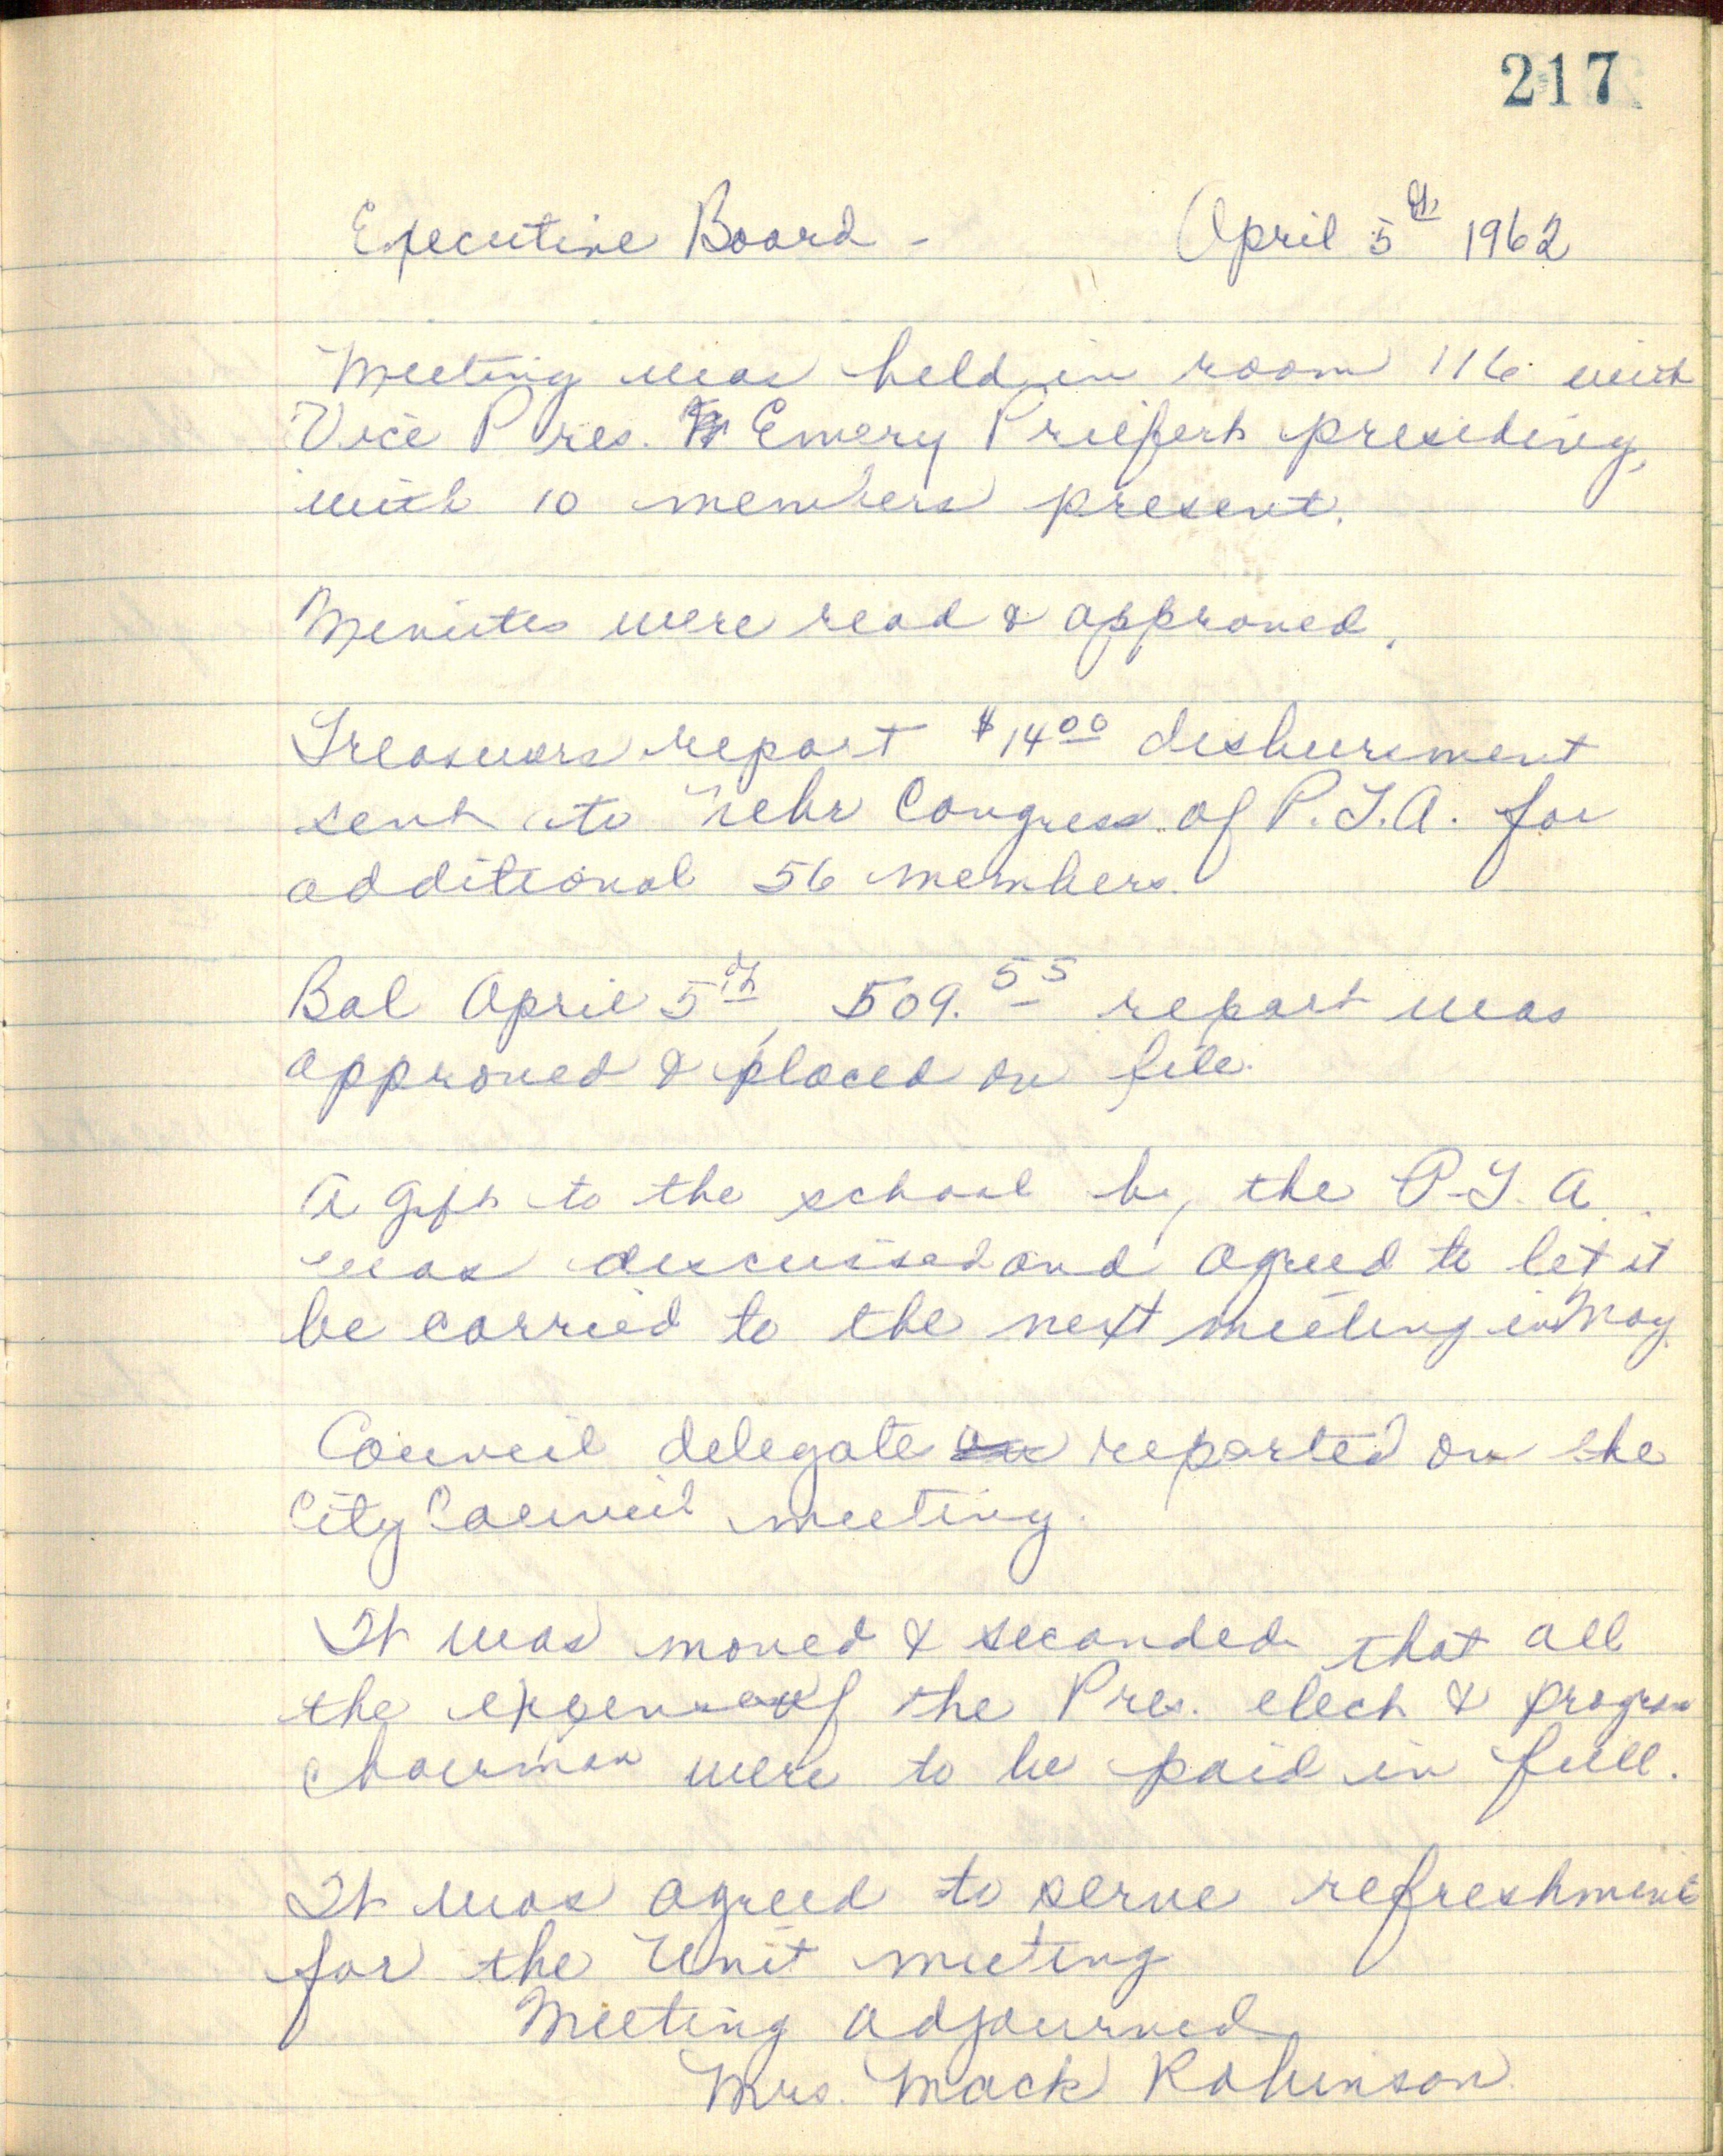 217
Executive Board - April 5th 1962
Meeting was held in room 116 with
Vice Pres. Emery Priefert presiding,
with 10 members present.
Minutes were read & approved.
Treasuors report $1400 disbursment
sent to Nebr Congress of P.T.A. for
additional 56 members.
Bal April 5th, 509.55 report was
approved & placed on file.
A Gift to the school by the P.T.A.
was discussed and agreed to let it
be carried to the next meeting in May.
Council delegate reported on the
City Council meeting.
It was moved & seconded that all
the expense of the Pres. elect & program
chairman were to be paid in full.
It was agreed to serve refreshment
for the Unit meeting
Meeting adjourned
Mrs. Mack Robinson